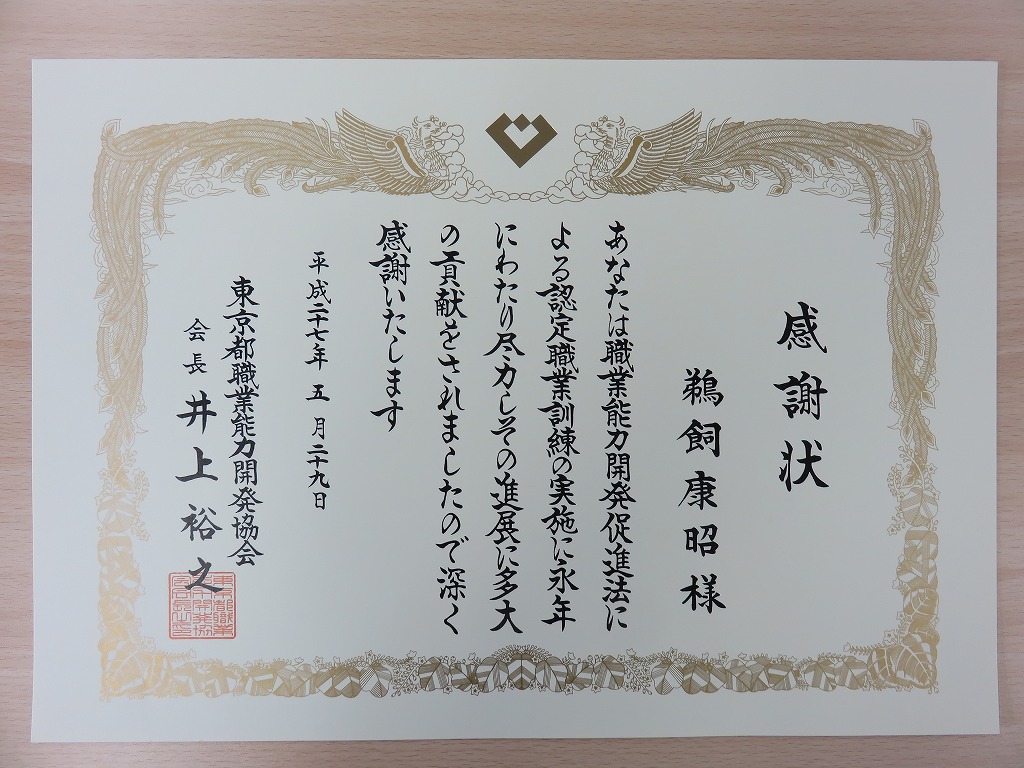 感謝状
鵜飼康昭様
あなたは職業能力開発促進法に
よる認定職業訓練の実施に永年
にわたり尽力しその進展に多大
の貢献をされましたので深く
感謝いたします
平成二十七年五月二十九日
東京都職業能力開発協会
会長 井上裕之